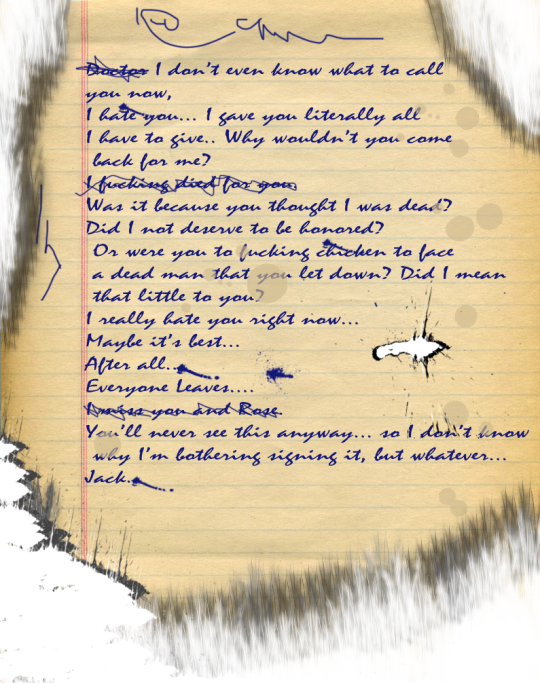 Doctor I don't even know what to call
you now,
I hate you... I gave you literally all
I have to give.. Why wouldn't you come
back for me?
I fucking died for you
Was it because you thought I was dead?
Did I not deserve to be honored?
Or were you to fucking chicken to face
a dead man that you let down? Did I mean
that little to you?
I really hate you right now...
Maybe it's best...
After all...
Everyone Leaves....
I miss you and Rose
You'll never see this anyway... so I don't know
why I'm bothering signing it, but whatever...
Jack.